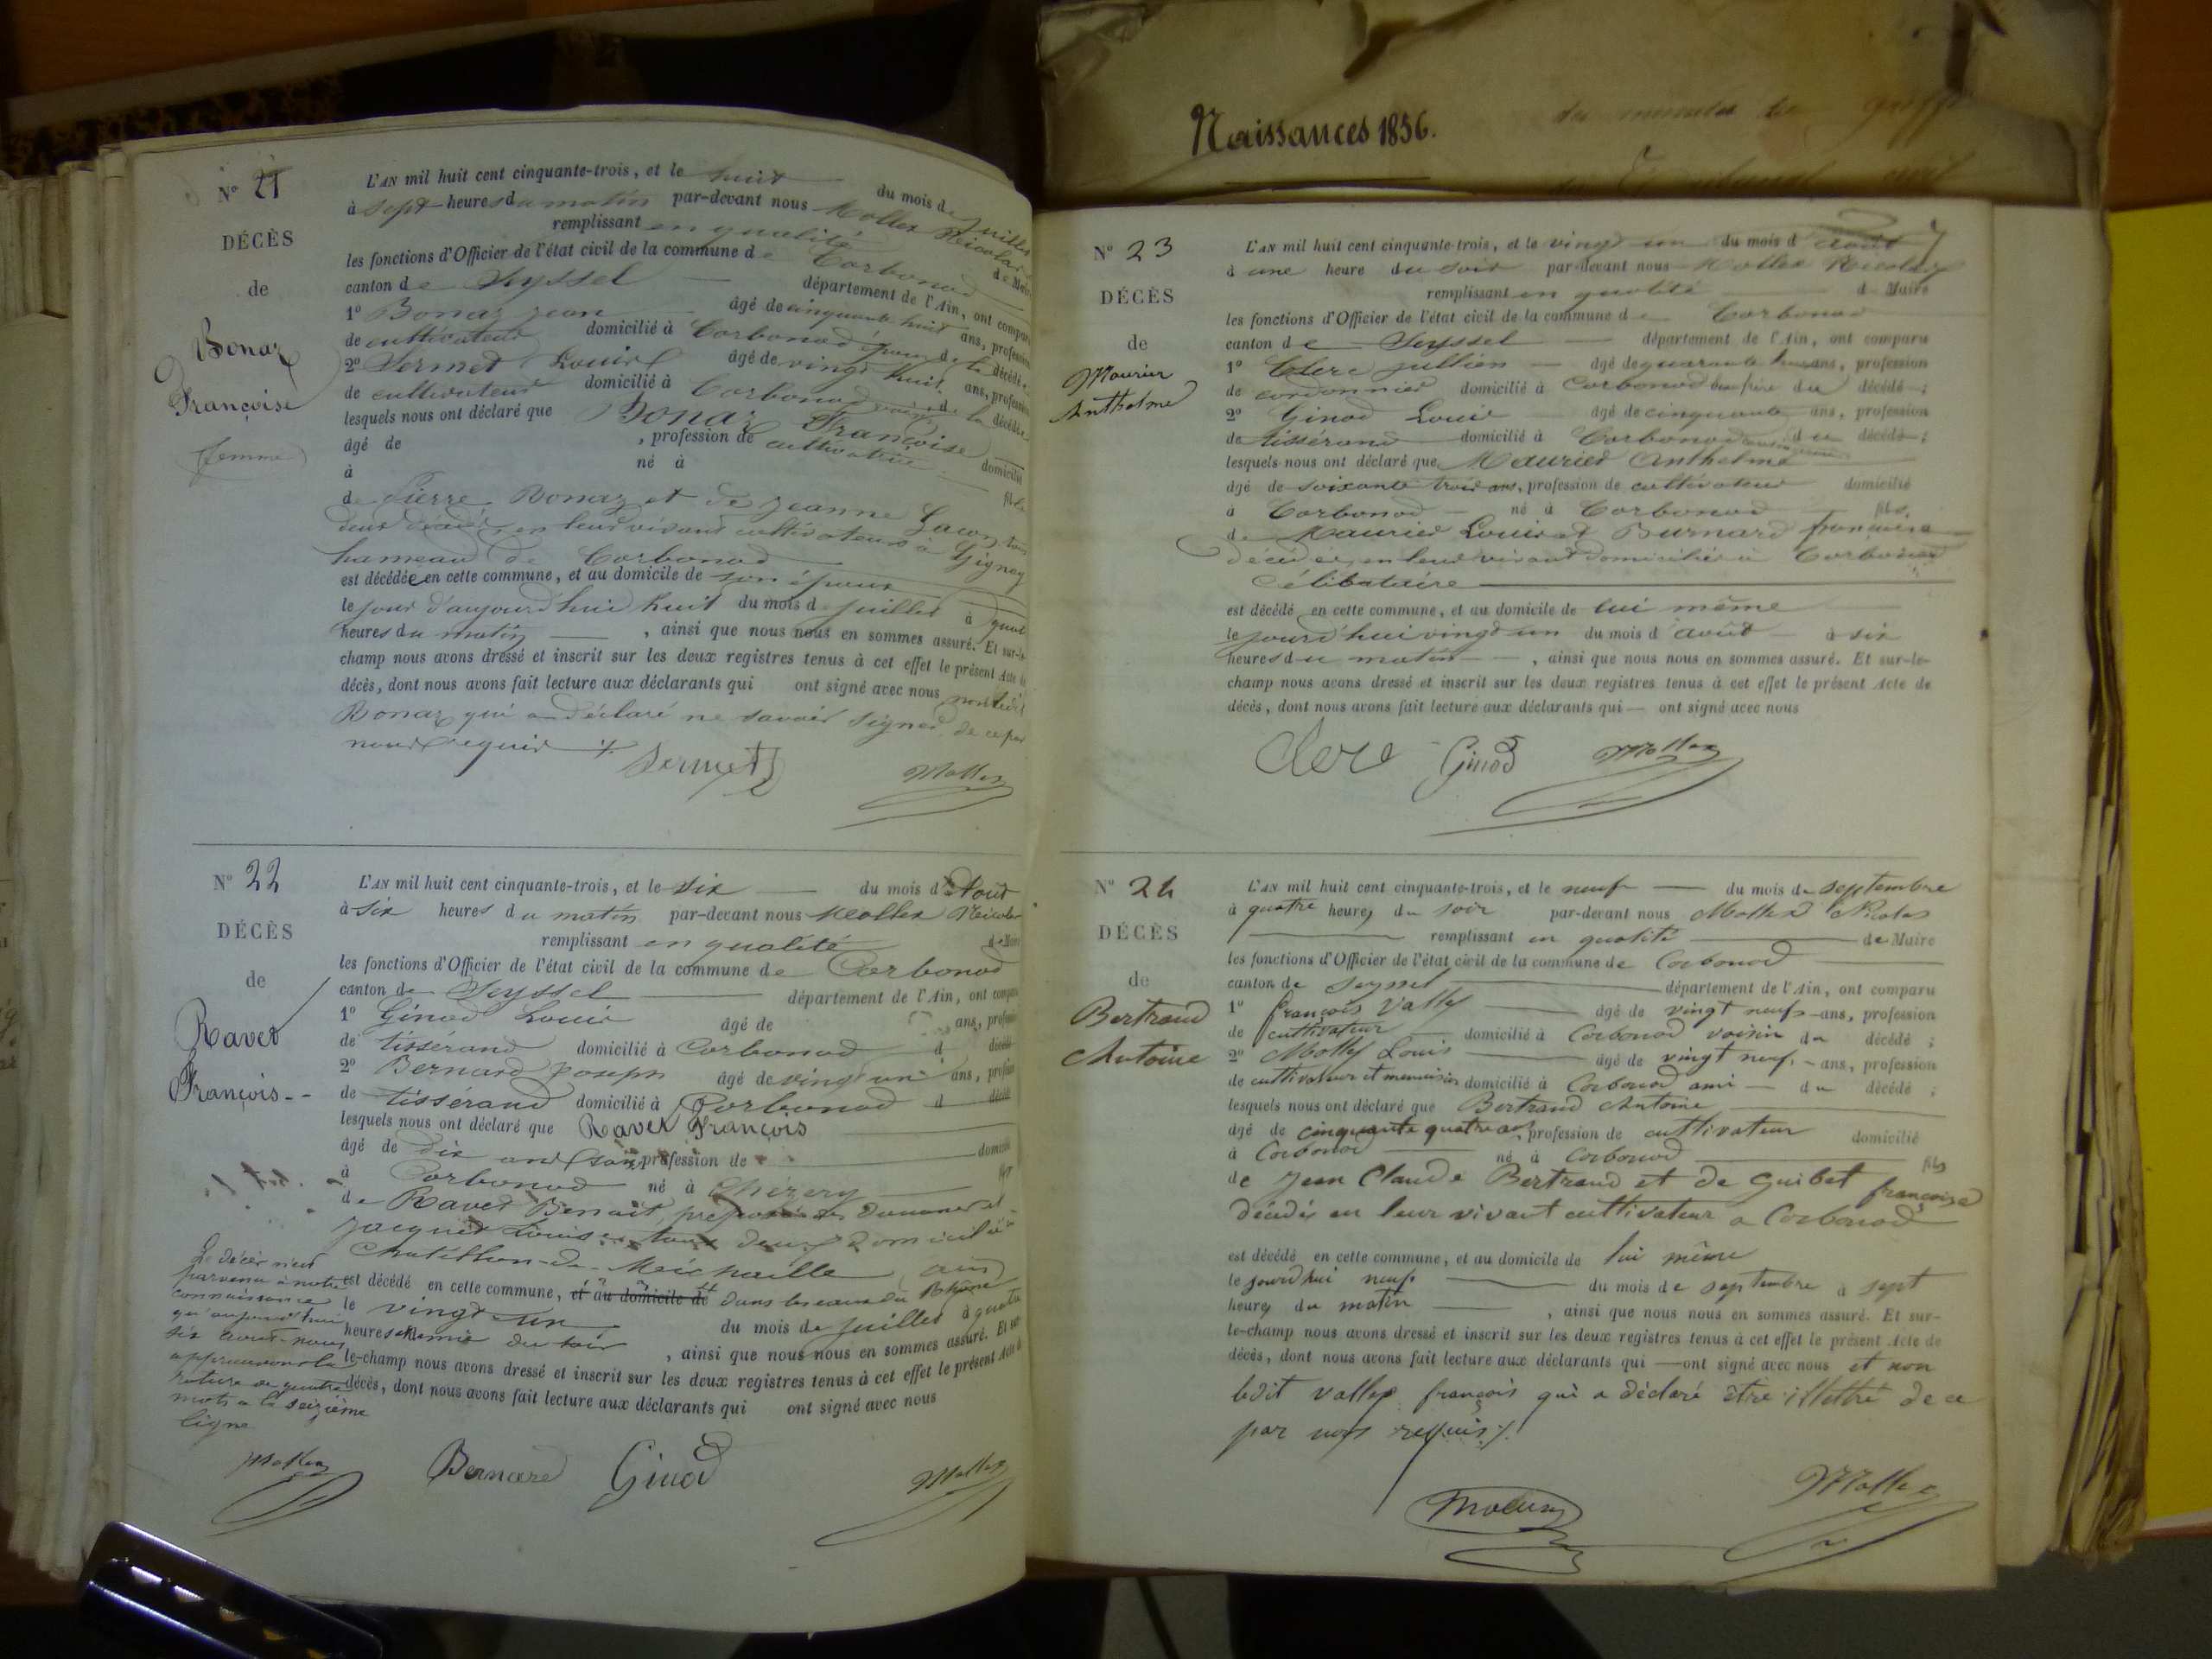 N° 21
DÉCÈS
de
Bonaz
Françoise
femme
L'AN mil huit cent cinquante-trois, et le huit du mois de juillet
à sept heures du matin par-devant nous Mollex Nicolas
remplissant en qualité de Maire
les fonctions d'Officier de l'état civil de la commune de Corbonod
canton de Seyssel département de l'Ain, ont comparu
1° Bonaz jean âgé de cinquante huit ans, profession
de cultivateur domicilié à Corbonod époux de la décédée
2° Sermet Louis âgé de vingt huit ans, profession
de cultivateur domicilié à Corbonod voisin de la décédée
lesquels nous ont déclaré que Bonaz Françoise
âgé de , profession de cultivatrice domicilié
à né à fils
de Pierre Bonaz et de jeanne Gacon tous
deux décédés en leur vivant cultivateurs à Gignez
hameau de Corbonod
est décédée en cette commune, et au domicile de son époux
le jour d'aujourd'hui huit du mois de juillet à
heures du matin , ainsi que nous nous en sommes assuré. Et sur-le-
champ nous avons dressé et inscrit sur les deux registres tenus à cet effet le présent Acte de
décès, dont nous avons fait lecture aux déclarants qui ont signé avec nous non ledit
Bonaz qui a déclaré ne savoir signer de ce par
nous requis
Sermet Mollex
N° 22
DÉCÈS
de
Ravet
François
L'AN mil huit cent cinquante-trois, et le six du mois d'Août
à six heures du matin par-devant nous Mollex Nicolas
remplissant en qualité de Maire
les fonctions d'Officier de l'état civil de la commune de Corbonod
canton de Seyssel département de l'Ain, ont comparu
1° Ginod Louis âgé de ans, profession
de tissérand domicilié à Corbonod d décédé
2° Bernard Joseph âgé de vingt un ans, profession
de tissérand domicilié à Corbonod d décédé
lesquels nous ont déclaré que Ravet François
âgé de dix ans sans profession de domicilié
à Corbonod né à Chézery fils
de Ravet Benoit préposé des Douanes et
jacquet Louise tous deux Domiciliés à
Chatillon-de-Meichaille (ain)
est décédé en cette commune, et au domicile de dans les eaux du Rhône
le vingt-un du mois de juillet à quatre
heures et demie du soir , ainsi que nous nous en sommes assuré. Et sur-
le-champ nous avons dressé et inscrit sur les deux registres tenus à cet effet le présent Acte de
décès, dont nous avons fait lecture aux déclarants qui ont signé avec nous
Le décès n'est
parvenu à notre
connaissance
qu'aujourd'hui
six août. nous
approuvons la
rature de quatre
mots a la seizième
ligne
Mollex Bernard Ginod Mollex
Naissances 1856.
N° 23
DÉCÈS
de
Maurier
Anthelme
L'AN mil huit cent cinquante-trois, et le vingt un du mois d'août
à une heure du soir par-devant nous Mollex Nicolas
remplissant en qualité de Maire
les fonctions d'Officier de l'état civil de la commune de Corbonod
canton de Seyssel département de l'Ain, ont comparu
1° Clerc jullien âgé de quarante ans, profession
de cordonnier domicilié à Corbonod beau frère du décédé ;
2° Ginod Louis âgé de cinquante ans, profession
de tissérand domicilié à Corbonod du décédé ;
lesquels nous ont déclaré que Maurier Anthelme
âgé de soixante trois ans, profession de cultivateur domicilié
à Corbonod né à Corbonod fils
de Maurier Louis et Burnard françoise
décédés, en leur vivant domiciliés à Corbonod
Célibataire
est décédé en cette commune, et au domicile de lui même
le jourd'hui vingt un du mois d'août à six
heures du matin , ainsi que nous nous en sommes assuré. Et sur-le-
champ nous avons dressé et inscrit sur les deux registres tenus à cet effet le présent Acte de
décès, dont nous avons fait lecture aux déclarants qui — ont signé avec nous
Clerc Ginod Mollex
N° 24
DÉCÈS
de
Bertrand
Antoine
L'AN mil huit cent cinquante-trois, et le neuf du mois de septembre
à quatre heures du soir par-devant nous Mollex Nicolas
remplissant en qualité de Maire
les fonctions d'Officier de l'état civil de la commune de Corbonod
canton de Seyssel département de l'Ain, ont comparu
1° françois Vallex âgé de vingt neuf ans, profession
de cultivateur domicilié à Corbonod voisin du décédé ;
2° Louis âgé de vingt neuf ans, profession
de cultivateur et menuisier domicilié à Corbonod ami du décédé ;
lesquels nous ont déclaré que Bertrand Antoine
âgé de cinquante quatre ans, profession de cultivateur domicilié
à Corbonod né à Corbonod fils
de Jean Claude Bertrand et de Guibet françoise
décédés en leur vivant cultivateur a Corbonod
est décédé en cette commune, et au domicile de lui même
le jourd'hui neuf du mois de septembre à sept
heures du matin , ainsi que nous nous en sommes assuré. Et sur-
le-champ nous avons dressé et inscrit sur les deux registres tenus à cet effet le présent Acte de
décès, dont nous avons fait lecture aux déclarants qui — ont signé avec nous et non
ledit vallex françois qui a déclaré être illettré de ce
par nous requis
Mollex